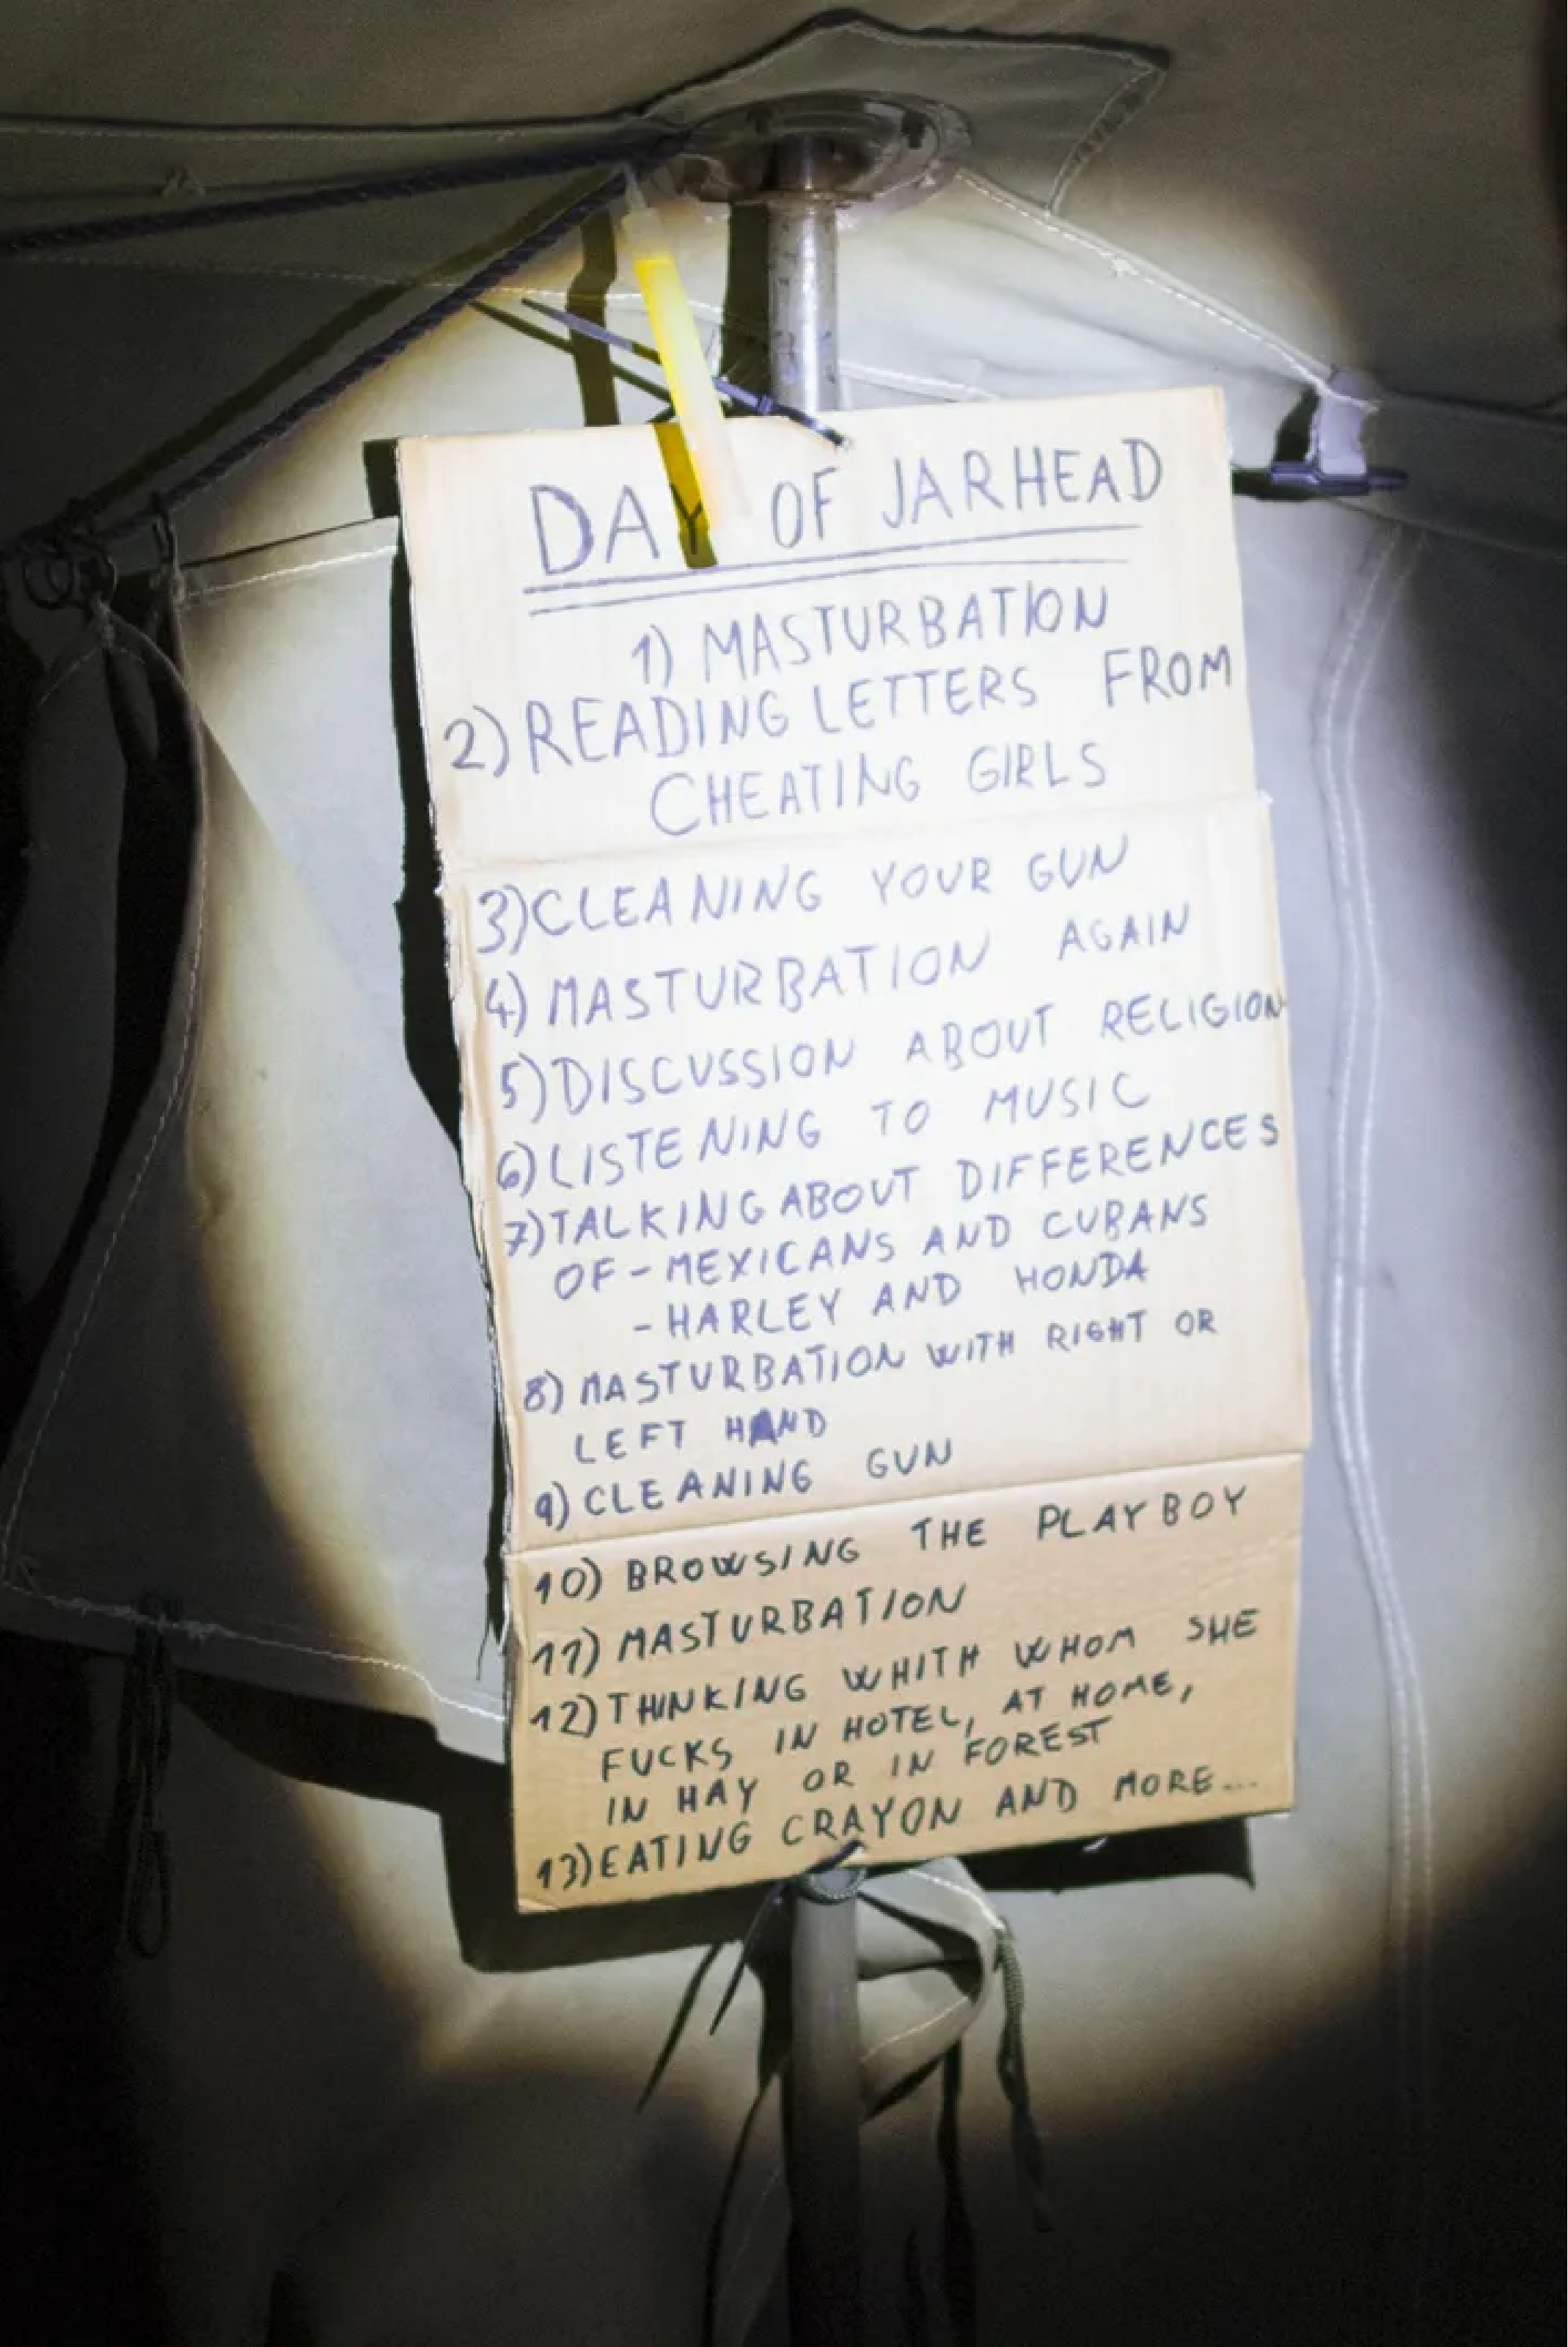 DAY OF JARHEAD
1) MASTURBATION
2) READING LETTERS FROM
CHEATING GIRLS
3) CLEANING YOUR GUN
4) MASTURBATION AGAIN
5) DISCUSSION ABOUT RELIGION
6) LISTENING TO MUSIC
7) TALKING ABOUT DIFFERENCES
OF - MEXICANS AND CUBANS
- HARLEY AND HONDA
8) MASTURBATION WITH RIGHT OR
LEFT HAND
9) CLEANING GUN
10) BROWSING THE PLAYBOY
11) MASTURBATION
12) THINKING WHITH WHOM SHE
FUCKS IN HOTEL, AT HOME,
IN HAY OR IN FOREST
13) EATING CRAYON AND MORE...